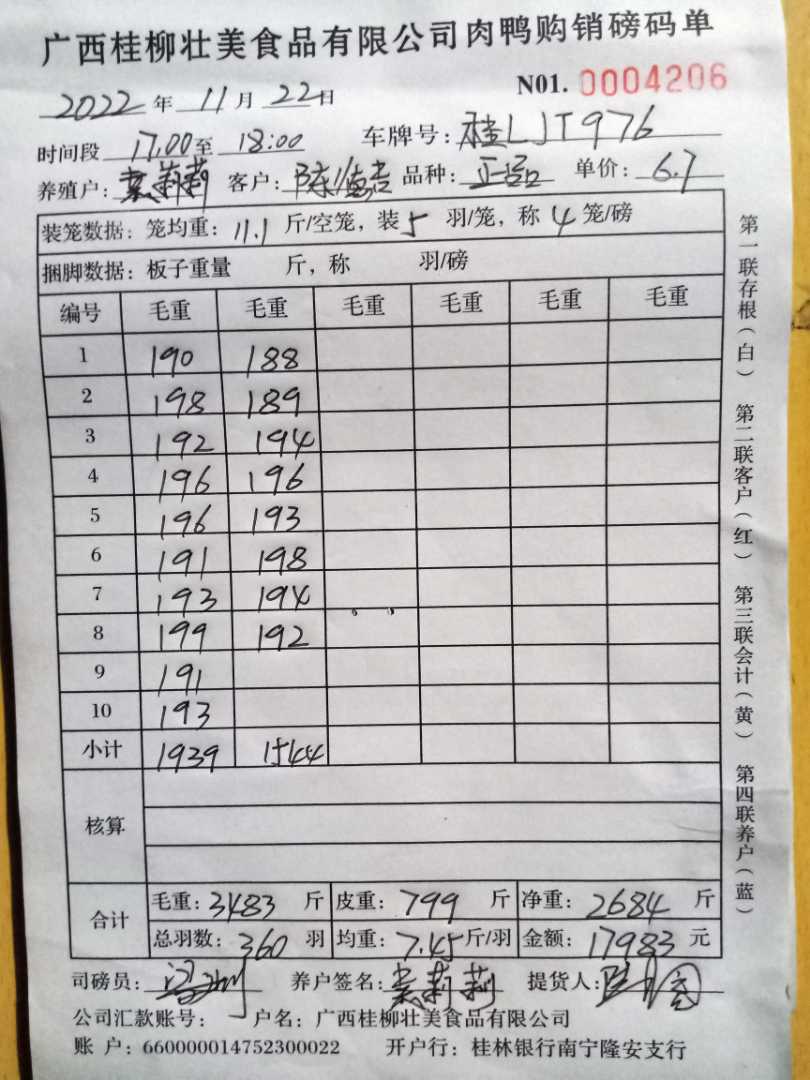 广西桂柳壮美食品有限公司肉鸭购销磅码单
N01. 0004206
2022 年 11 月 22 日
时间段 17.00 至 18:00 车牌号: 桂LJT976
养殖户: 莉莉 客户: 陈 品种: 正品 单价: 6.7
装笼数据: 笼均重: 11.1 斤/空笼, 装 5 羽/笼, 称 4 笼/磅
捆脚数据: 板子重量 斤, 称 羽/磅
编号 毛重 毛重 毛重 毛重 毛重 毛重
1 190 188
2 198 189
3 192 194
4 196 196
5 196 193
6 191 198
7 193 194
8 199 192
9 191
10 193
小计 1939 1544
核算
合计 毛重: 3483 斤 皮重: 799 斤 净重: 2684 斤
总羽数: 360 羽 均重: 7.45 斤/羽 金额: 17983 元
司磅员: 养户签名: 莉莉 提货人:
公司汇款账号: 户名: 广西桂柳壮美食品有限公司
账 户: 660000014752300022 开户行: 桂林银行南宁隆安支行
第一联存根(白) 第二联客户(红) 第三联会计(黄) 第四联养户(蓝)